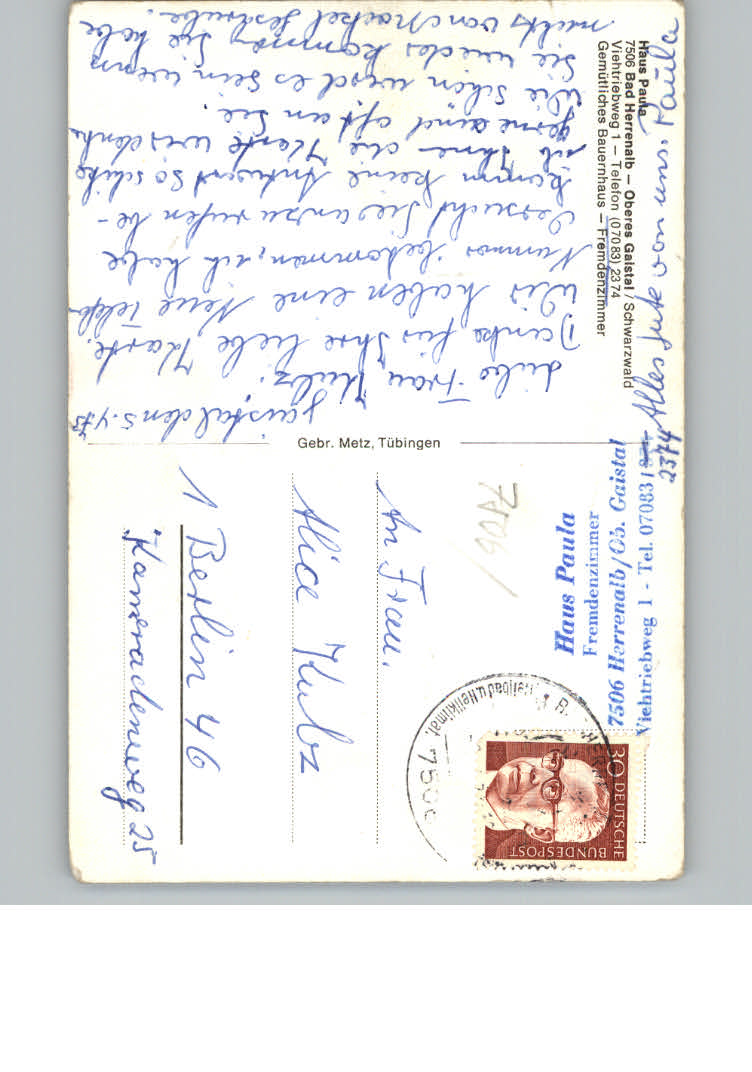 Haus Paula
7506 Bad Herrenalb – Oberes Gaistal / Schwarzwald
Viehtriebweg 1 – Telefon (07083) 2374
Gemütliches Bauernhaus – Fremdenzimmer
Gaistal den 5.4.73
Liebe Frau Kulz.
Danke für Ihre liebe Karte.
Wir haben eine Neue Telefon
Nummer bekommen, ich habe
versucht Sie anzurufen be-
kamm keine Antwort so schike
ich Ihne die Karte wir denke
gerne und oft an Sie.
Wie schön wird es sein wenn
Sie wieder kommen, Sie habe
nichts von Maikel geschriebe.
Alles gute von uns. Paula
Gebr. Metz, Tübingen
Haus Paula
Fremdenzimmer
7506 Herrenalb/Ob. Gaistal
Viehtriebweg 1 - Tel. 07083/
2374
7506/
An Frau.
Alice Kulz
1 Berlin 46
Kameradenweg 25
30 DEUTSCHE
BUNDESPOST
7506
Heilbad u. Heilklimat.